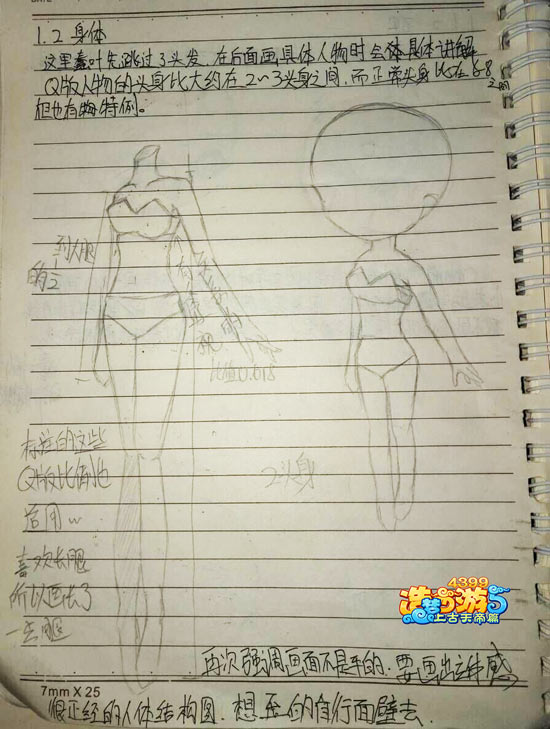 1.2 身体
这里蠢叶先跳过了头发，在后面画具体人物时会体具体讲解
Q版人物的头身比大约在2~3头身之间，而正常头身比在6-8
之间
但也有特例。
到大腿
的
比值0.618
标注的这些
Q版比值也
适用w
2头身
喜欢长腿
所以画长了
一点腿
4399
造梦西游5
上古天帝篇
再次强调画面不是平的，要画出立体感
7mm X 25
很正经的人体结构图，想歪的自行面壁去.